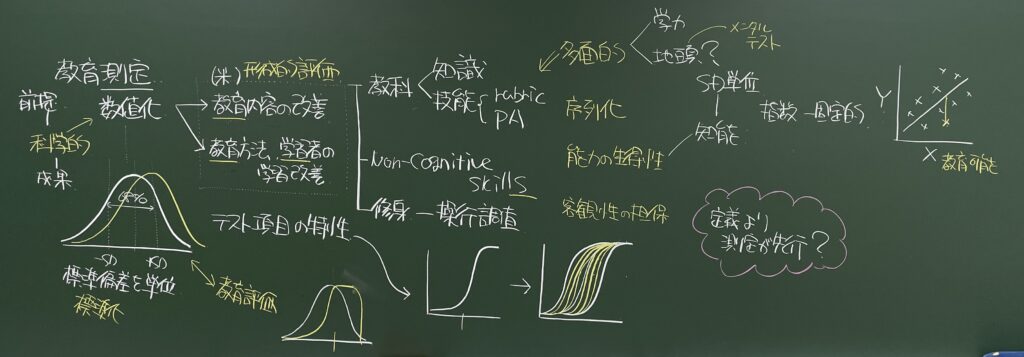 教育測定
前提
数値化
科学的
成果
68%
-SD
+SD
標準偏差を単位
標準化
教育評価
(米) 形成的評価
教育内容の改善
教育方法、学習者の
学習改善
テスト項目の特性
教科
知識
技能
rubric
PA
Non-Cognitive
Skills
修身 ー 操行調査
多面的
学力
地頭?
メンタル
テスト
序列化
能力の生得性
SD単位
知能
客観性の担保
指数 ー 固定的
定義より
測定が先行?
Y
X
教育可能